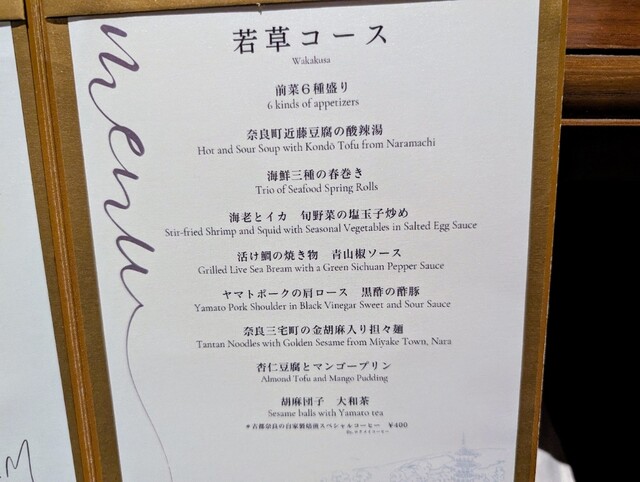 menu
若草コース
Wakakusa
前菜6種盛り
6 kinds of appetizers
奈良町近藤豆腐の酸辣湯
Hot and Sour Soup with Kondō Tofu from Naramachi
海鮮三種の春巻き
Trio of Seafood Spring Rolls
海老とイカ 旬野菜の塩玉子炒め
Stir-fried Shrimp and Squid with Seasonal Vegetables in Salted Egg Sauce
活け鯛の焼き物 青山椒ソース
Grilled Live Sea Bream with a Green Sichuan Pepper Sauce
ヤマトポークの肩ロース 黒酢の酢豚
Yamato Pork Shoulder in Black Vinegar Sweet and Sour Sauce
奈良三宅町の金胡麻入り担々麺
Tantan Noodles with Golden Sesame from Miyake Town, Nara
杏仁豆腐とマンゴープリン
Almond Tofu and Mango Pudding
胡麻団子 大和茶
Sesame balls with Yamato tea
＊古都奈良の自家製焙煎スペシャルコーヒー ¥400